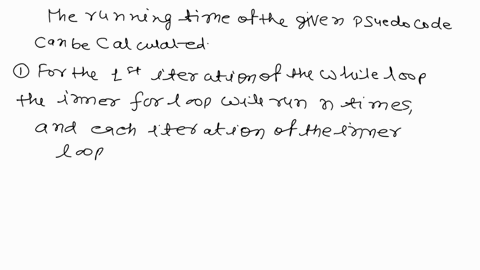 The running time of the given PSuedocode
Can be Calculated.
① For the 1st iteration of the while loop
the inner for loop will run n times,
and each iteration of the inner
loop